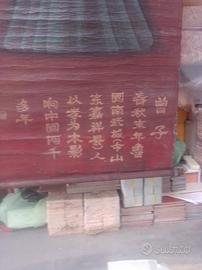 曾子
春秋末年鲁
国南武城（今山
东嘉祥县）人
以孝为本影
响中国两千
多年